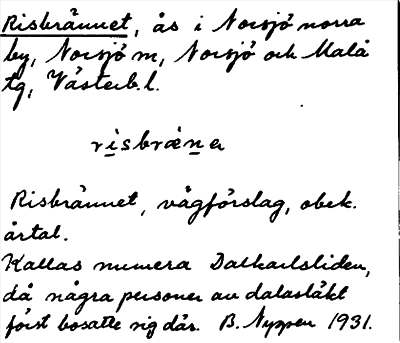 Risbrännet, ås i Norsjö norra
by, Norsjö m, Norsjö och Malå
tg, Västerb.l.
risbrǽna
Risbrännet, vägförslag, obek.
årtal.
Kallas numera Dalkarlsliden,
då några personer av dalasläkt
först bosatte sig där. B. Nyppen 1931.